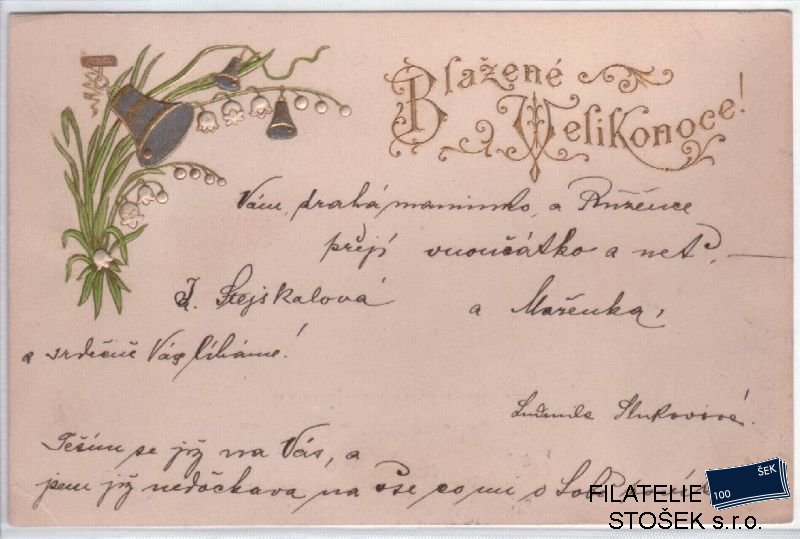 Blažené
Velikonoce!
Vám, drahá maminko, a Růžence
přejí vnoučátko a
J. Stejskalová a Mařenka,
a srdečně Vás líbáme!
Ludmila
Těším se již na Vás, a
jsem již nedočkava na vše co mi o
FILATELIE
STOŠEK s.r.o.
ŠEK
100